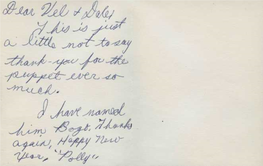 Dear Vel & Dale,
This is just
a little not to say
thank-you for the
puppet ever so
much.
I have named
him Bozo. Thanks
again, Happy New
Year, "Polly"